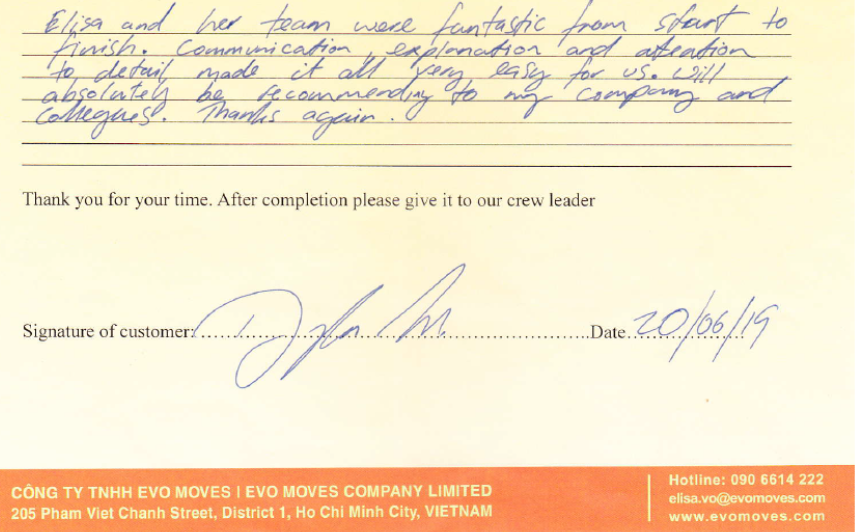 Elisa and her team were fantastic from start to
finish. Communication, explanation and attention
to detail made it all very easy for us. Will
absolutely be recommending to my company and
collegues. Thanks again.
Thank you for your time. After completion please give it to our crew leader
Signature of customer: Date 20/06/19
CÔNG TY TNHH EVO MOVES | EVO MOVES COMPANY LIMITED
205 Pham Viet Chanh Street, District 1, Ho Chi Minh City, VIETNAM
Hotline: 090 6614 222
elisa.vo@evomoves.com
www.evomoves.com